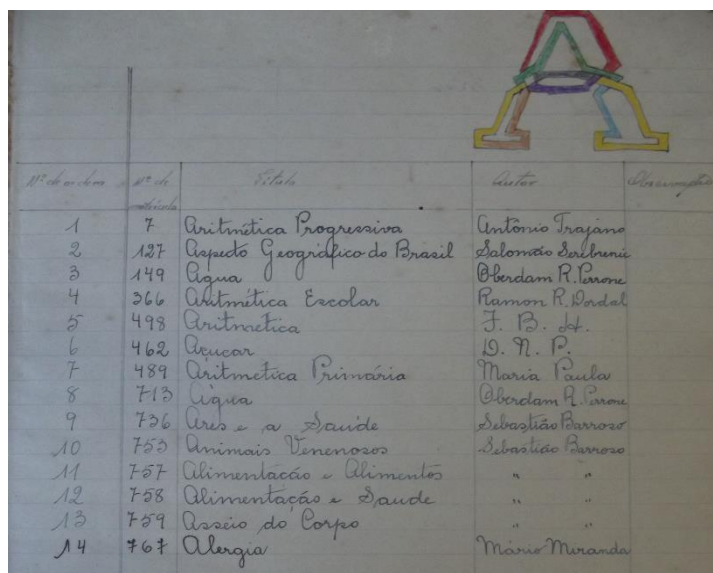 A
Nº de ordem Nº de matrícula Título Autor Observações
1 7 Aritmética Progressiva Antônio Trajano
2 127 Aspecto Geográfico do Brasil Salomão Serebrenic
3 149 Água Oberdam R. Perrone
4 366 Aritmética Escolar Ramon R. Dordal
5 498 Aritmetica F. B. H.
6 462 Açucar D. N. P.
7 489 Aritmetica Primária Maria Paula
8 713 Água Oberdam R. Perrone
9 736 Ares e a Saúde Sebastião Barroso
10 753 Animais Venenosos Sebastião Barroso
11 757 Alimentacão e Alimentos " "
12 758 Alimentação e Saude " "
13 759 Asseio do Corpo " "
14 767 Alergia Mário Miranda